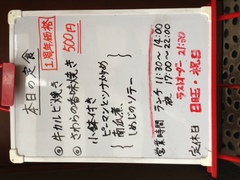 本日の定食
1周年価格
500円
◎ 牛カルビ焼き
◎ さわらの香味焼き
小鉢付き
ピーマンとツナ炒め
南瓜煮
しめじのソテー
営業時間
ランチ 11:30~14:00
夜 17:30~22:00
ラストオーダー 21:30
定休日
日曜・祝日